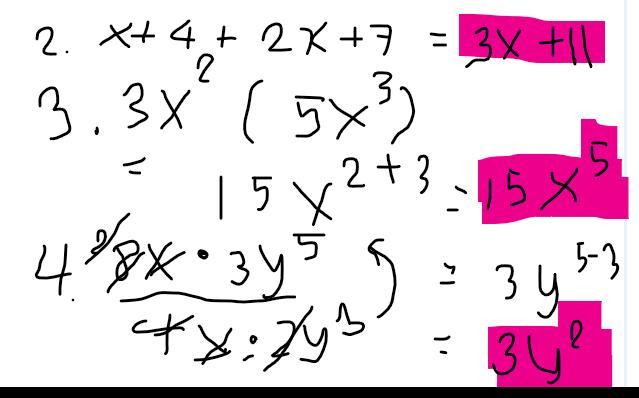 2. x+4+2x+7 = 3x+11
3. 3x² (5x³)
= 15x²⁺³ = 15x⁵
4. ²8x · 3y⁵ = 3y⁵⁻³
4x · 2y³ = 3y²